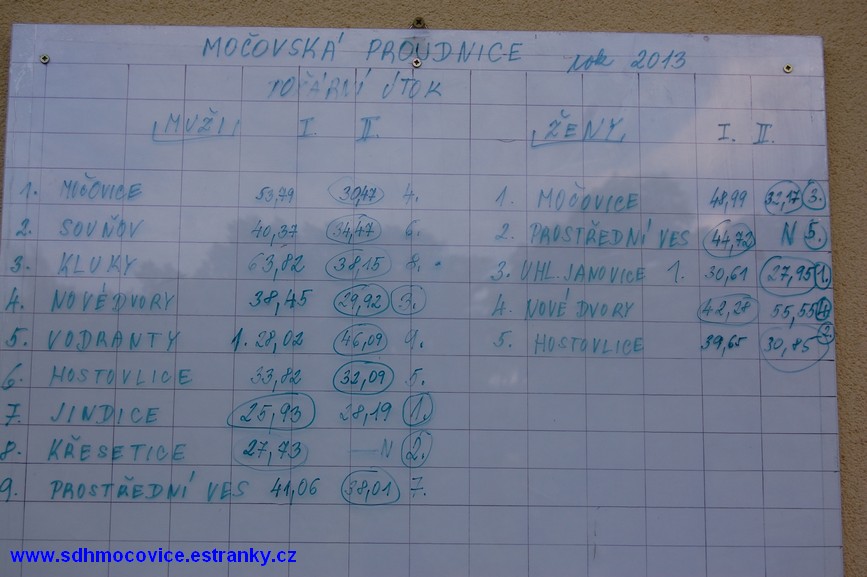 MOČOVSKÁ PROUDNICE rok 2013
POŽÁRNÍ ÚTOK
MUŽI I. II.
ŽENY I. II.
1. MOČOVICE 53,79 30,47 4.
2. SOUŇOV 40,37 34,47 6.
3. KLUKY 63,82 38,15 8.
4. NOVÉ DVORY 38,45 29,92 3.
5. VODRANTY 1. 28,02 46,09 9.
6. HOSTOVLICE 33,82 32,09 5.
7. JINDICE 25,93 28,19 1.
8. KŘESETICE 27,73 — N 2.
9. PROSTŘEDNÍ VES 41,06 38,01 7.
1. MOČOVICE 48,99 32,17 3.
2. PROSTŘEDNÍ VES 44,72 N 5.
3. UHL. JANOVICE 1. 30,61 27,95 1.
4. NOVÉ DVORY 42,28 55,55 4
5. HOSTOVLICE 39,65 30,85 2
www.sdhmocovice.estranky.cz